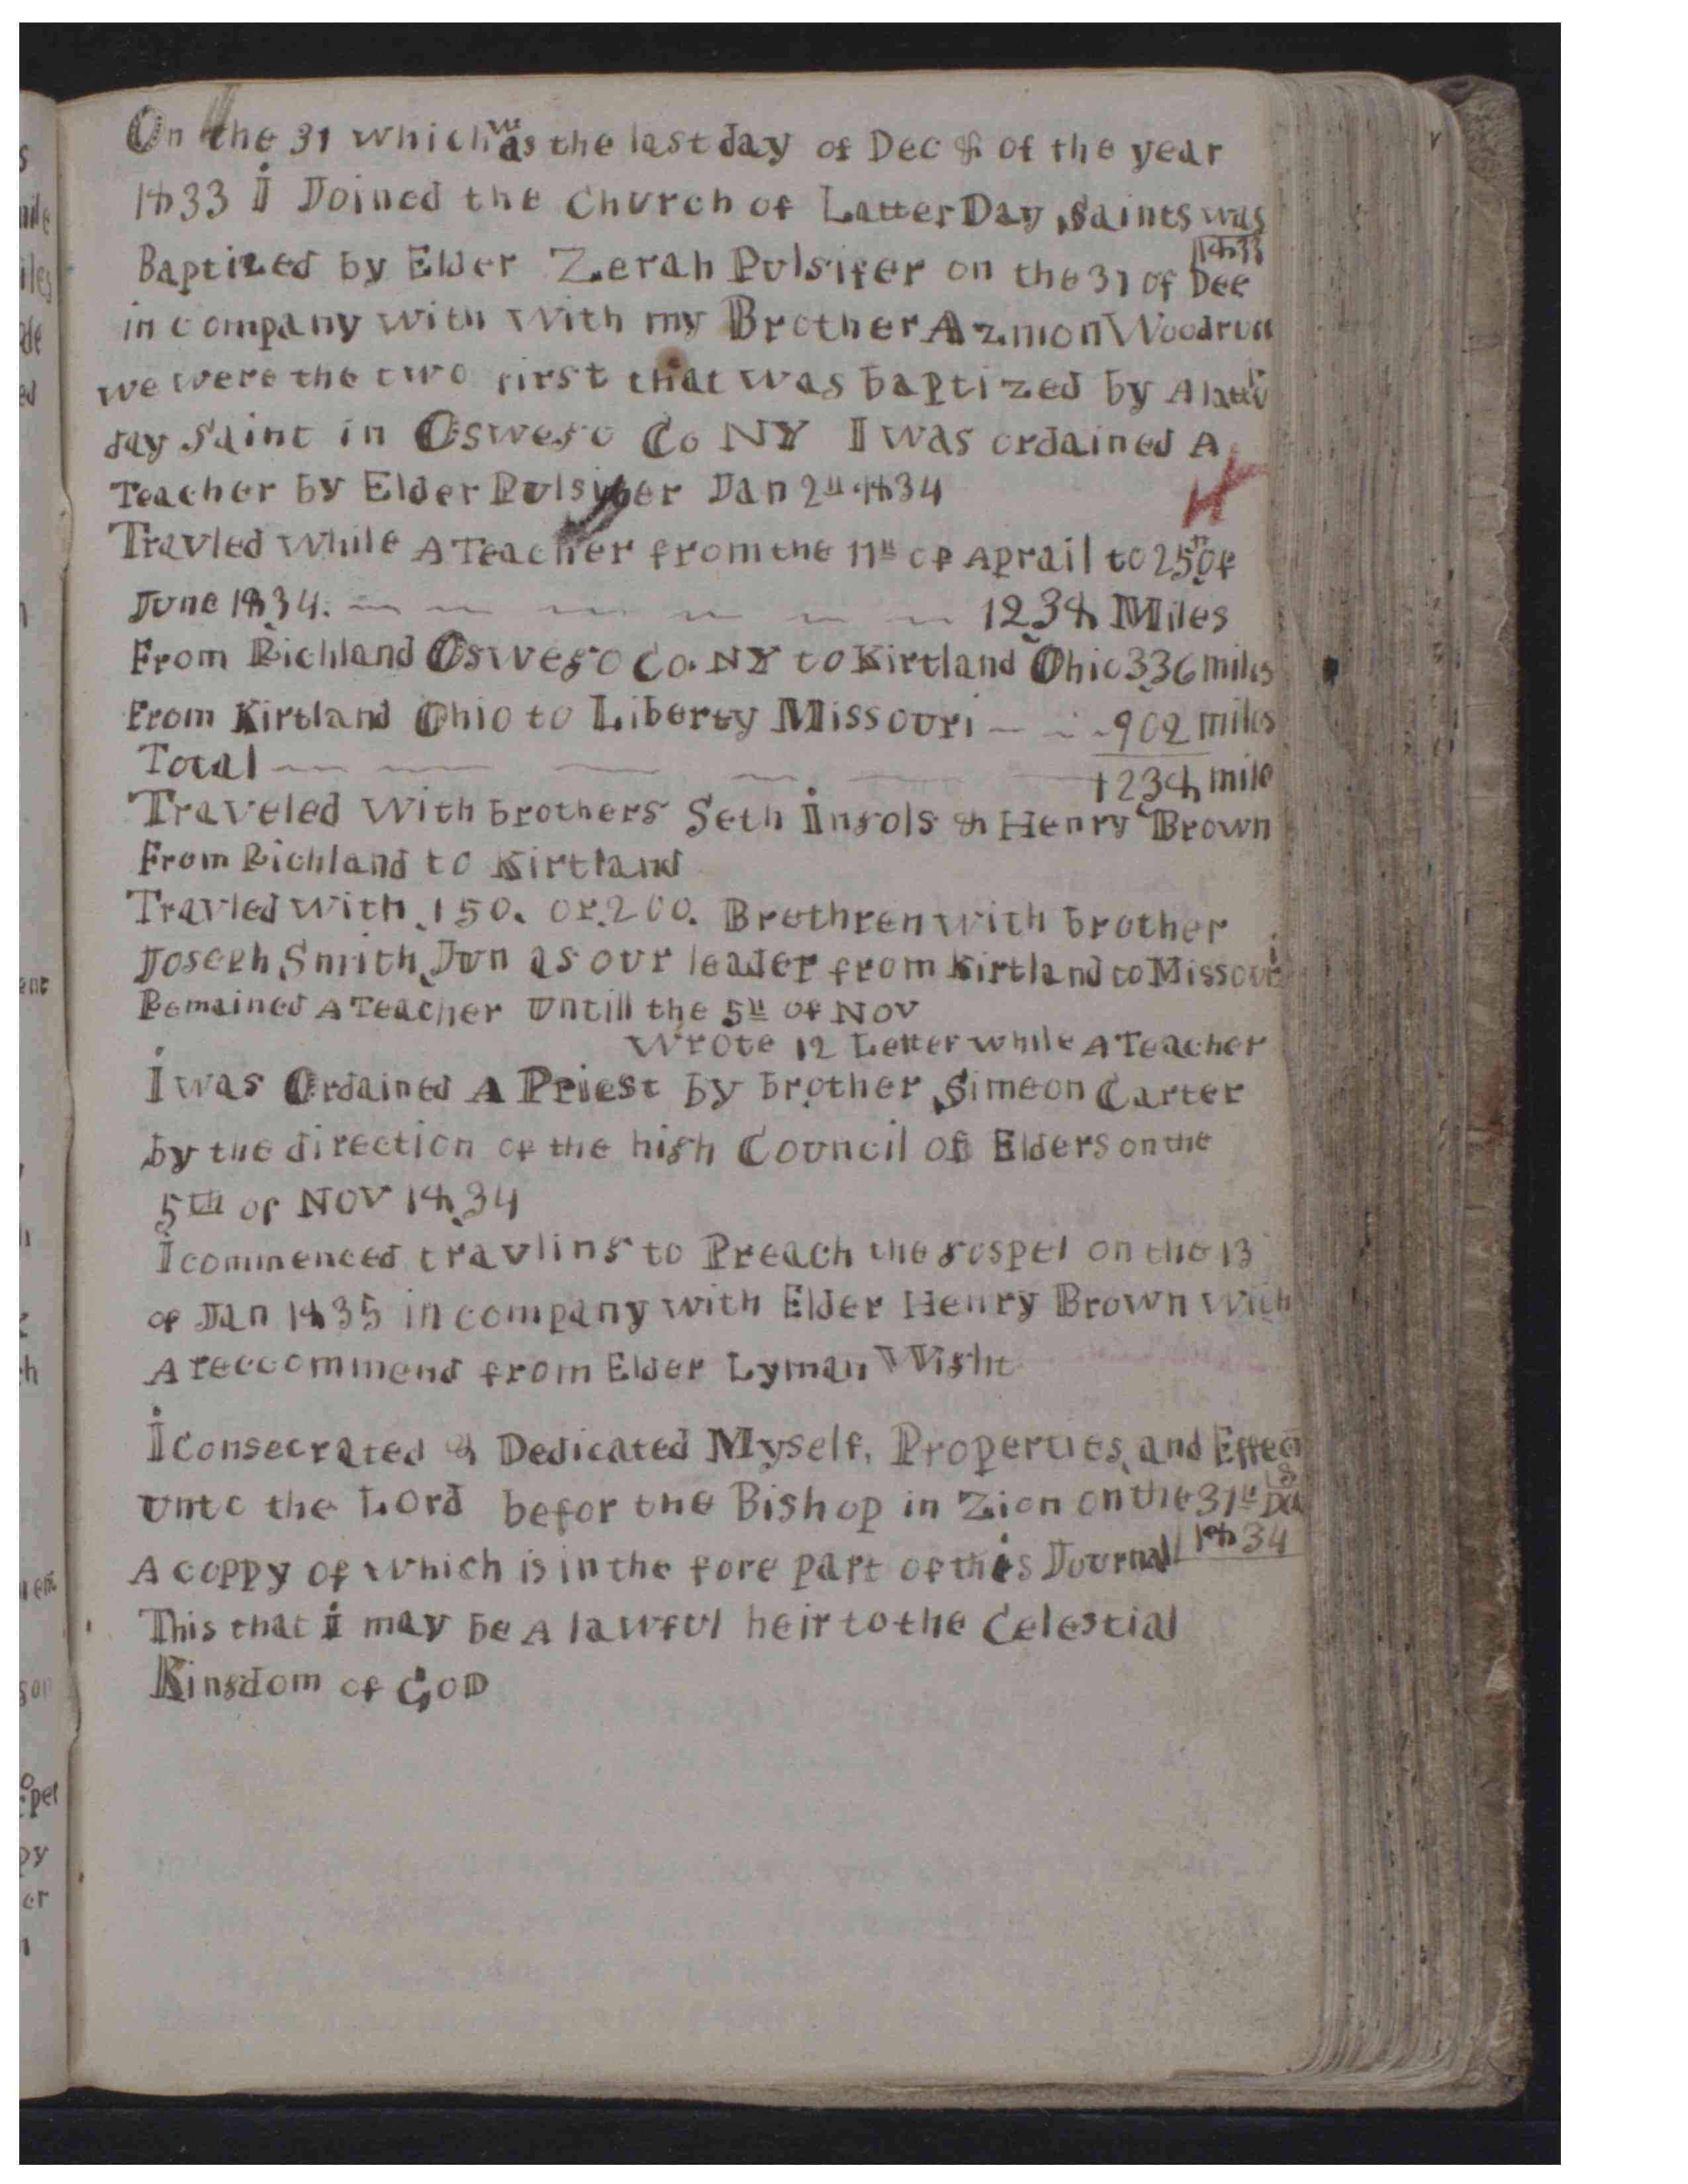 On the 31 which was the last day of Dec & of the year
1833 I Joined the Church of Latter Day Saints was
Baptized by Elder Zerah Pulsifer on the 31 of Dec 1833
in company with with my Brother Azmon Woodruff
we were the two first that was baptized by A latter
day Saint in Oswego Co NY I was ordained A
Teacher by Elder Pulsipher Jan 2d 1834
Travled while A Teacher from the 11th of Aprail to 25th of
June 1834. 1238 Miles
From Richland Oswego Co. NY to Kirtland Ohio 336 miles
From Kirtland Ohio to Liberty Missouri 902 miles
Total 1238 mile
Traveled with brothers Seth Ingols & Henry Brown
From Richland to Kirtland
Travled with 150. or 200. Brethren with brother
Joseph Smith Jun as our leader from Kirtland to Missouri
Remained A Teacher untill the 5th of Nov
Wrote 12 Letter while A Teacher
I was Ordained A Priest by brother Simeon Carter
by the direction of the high Council of Elders on the
5th of Nov 1834
I commenced travling to Preach the gospel on the 13
of Jan 1835 in company with Elder Henry Brown with
A reccommend from Elder Lyman Wight
I Consecrated & Dedicated Myself, Properties, and Effects
unto the Lord befor the Bishop in Zion on the 31st Dec
A coppy of which is in the fore part of this Journal 1834
This that I may be A lawful heir to the Celestial
Kingdom of GOD